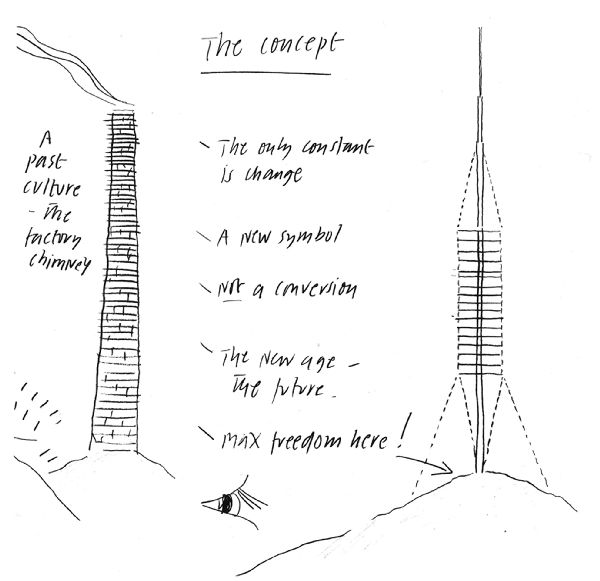 The concept
A
past
culture
- The
factory
chimney
The only constant
is change
A new symbol
not a conversion
The new age -
The future.
max freedom here!